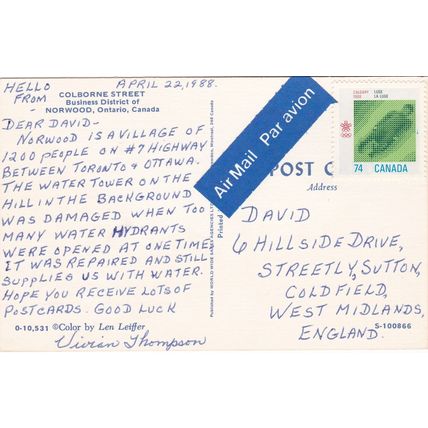 HELLO FROM -
APRIL 22, 1988.
COLBORNE STREET
Business District of
NORWOOD, Ontario, Canada
DEAR DAVID -
NORWOOD IS A VILLAGE OF
1200 PEOPLE ON #7 HIGHWAY
BETWEEN TORONTO & OTTAWA.
THE WATER TOWER ON THE
HILL IN THE BACKGROUND
WAS DAMAGED WHEN TOO
MANY WATER HYDRANTS
WERE OPENED AT ONE TIME.
IT WAS REPAIRED AND STILL
SUPPLIES US WITH WATER.
HOPE YOU RECEIVE LOTS OF
POSTCARDS. GOOD LUCK
0-10,531 ©Color by Len Leiffer
Vivian Thompson
PUBLISHED BY WORLD WIDE SALES AGENCIES
Montreal, 349 Canada
Printed
Air Mail Par avion
POST C
Address
CALGARY
1988
LUGE
LA LUGE
74 CANADA
DAVID
6 HILLSIDE DRIVE,
STREETLY, SUTTON,
COLDFIELD,
WEST MIDLANDS,
ENGLAND.
S-100866